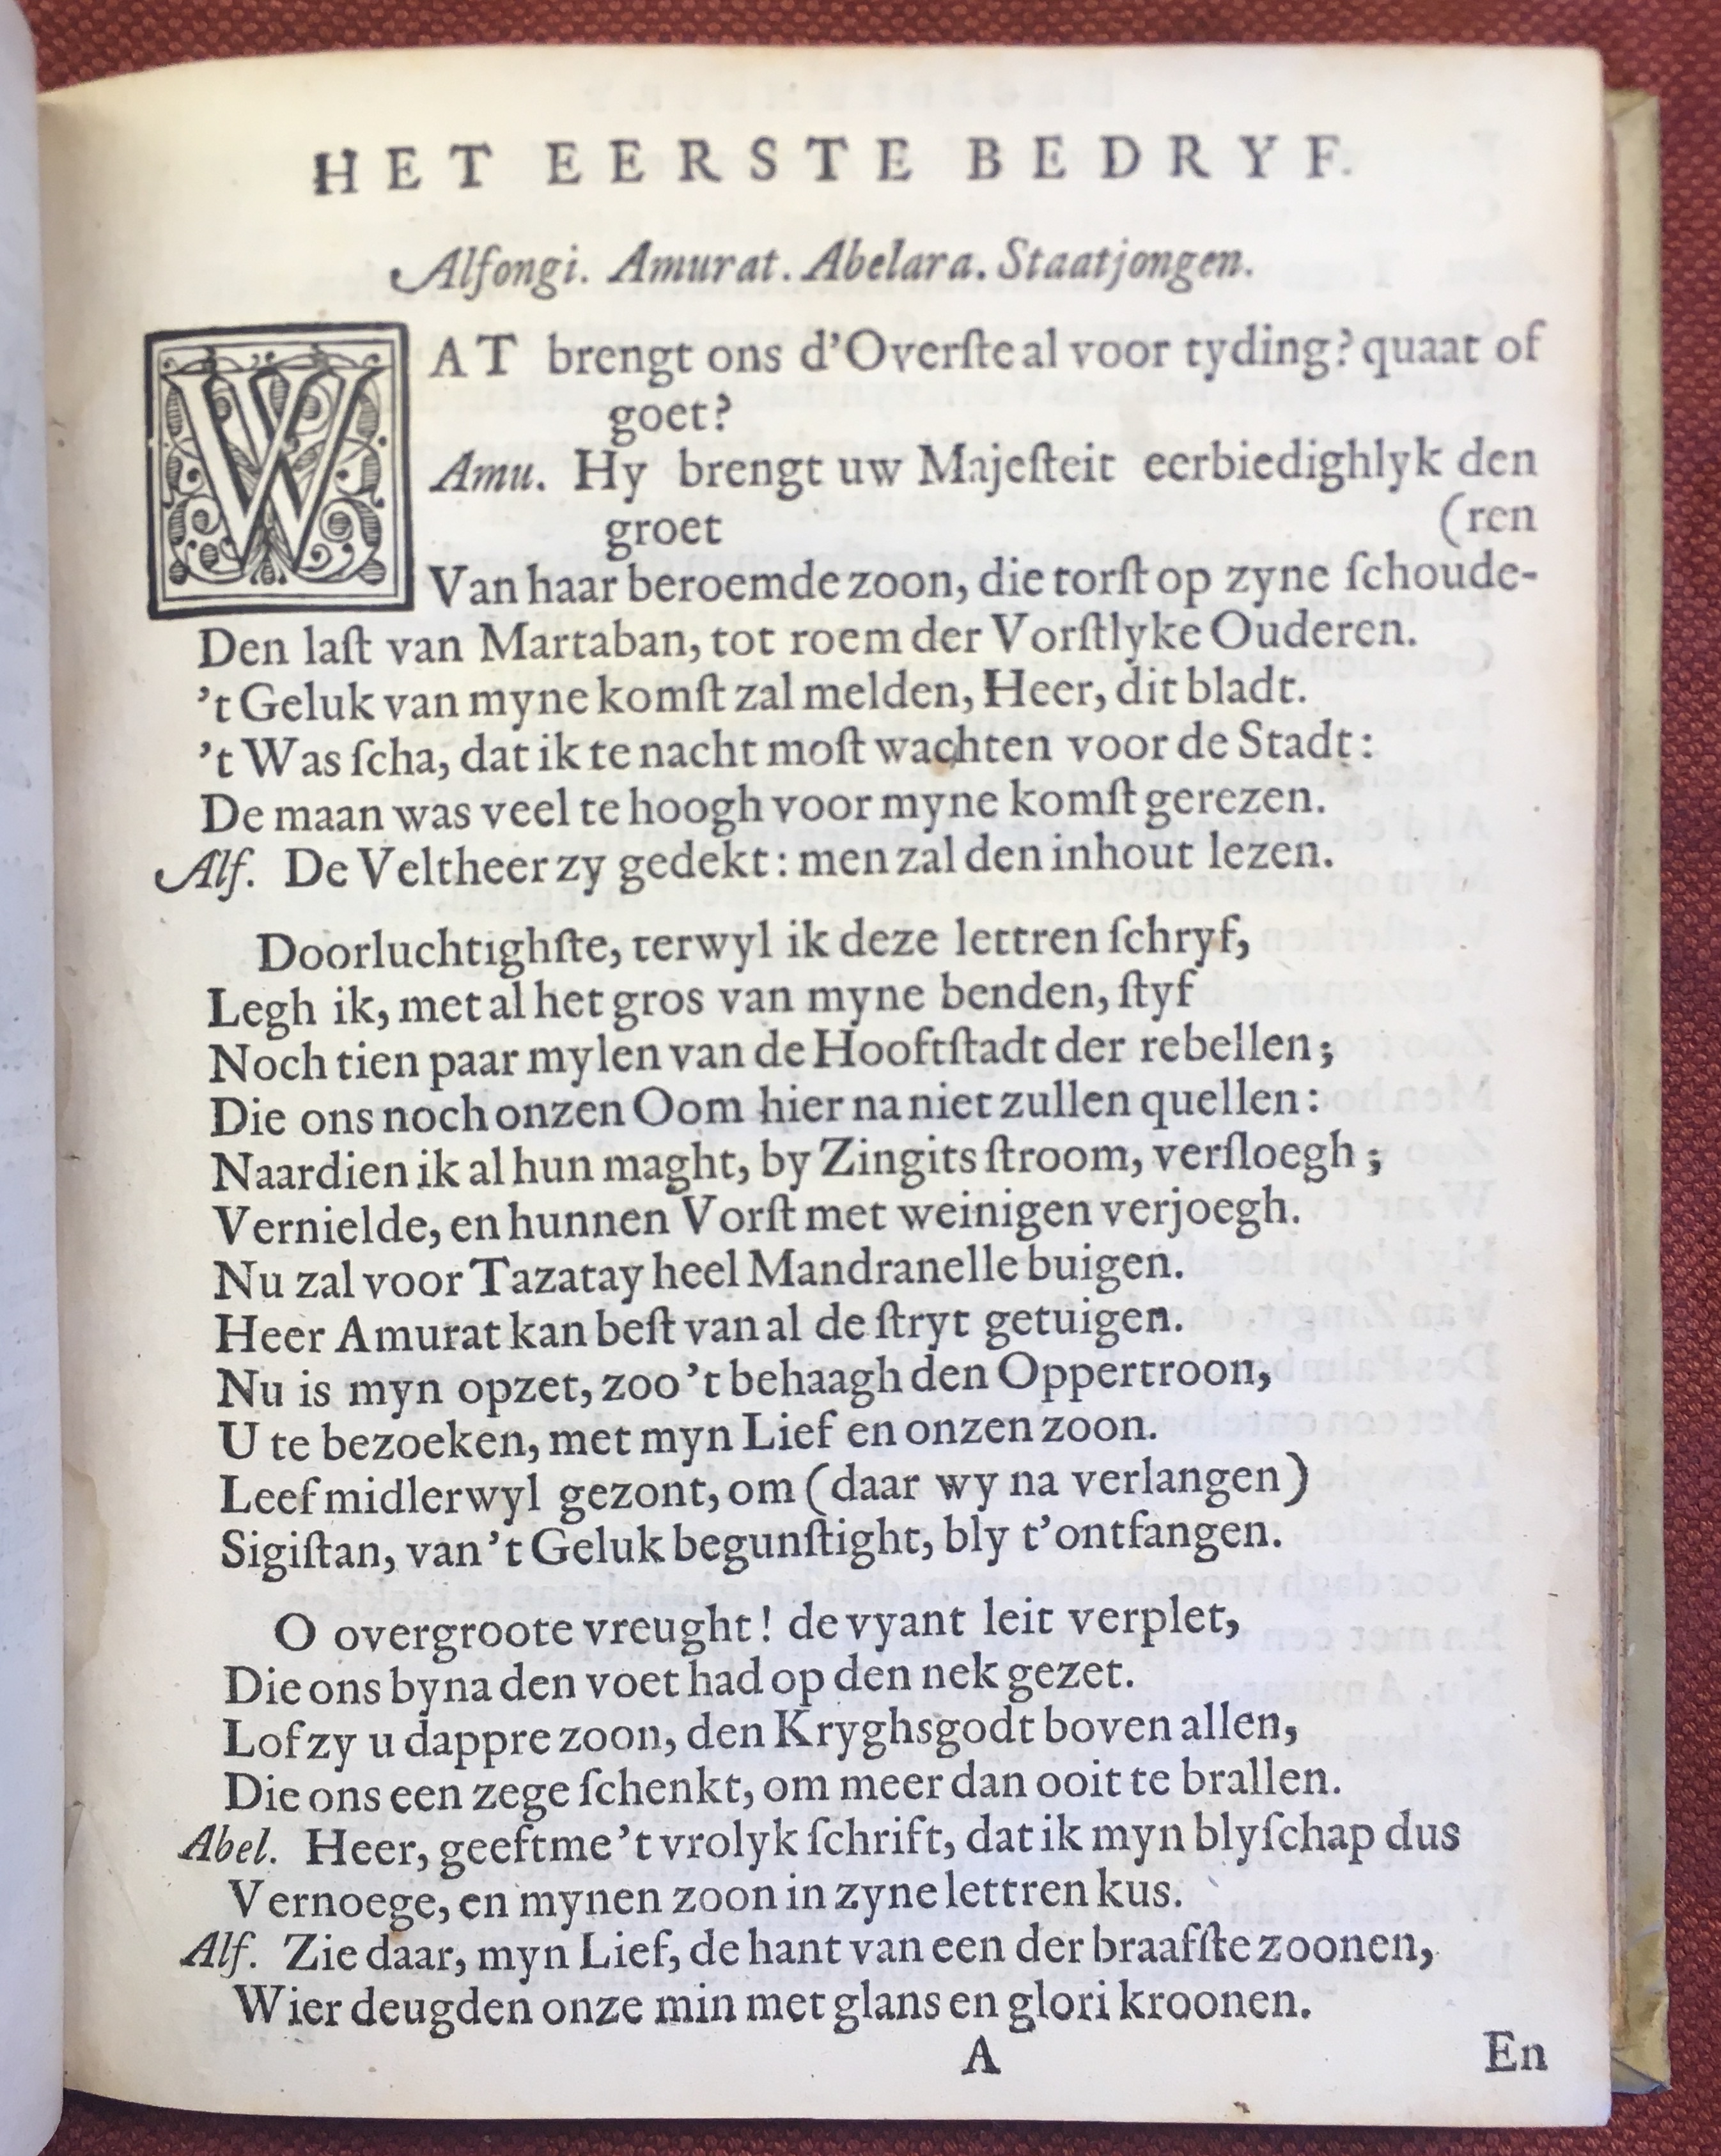 HET EERSTE BEDRYF.
Alfongi. Amurat. Abelara. Staatjongen.
WAT brengt ons d'Overſte al voor tyding? quaat of
goet?
Amu. Hy brengt uw Majeſteit eerbiedighlyk den
groet (ren
Van haar beroemde zoon, die torſt op zyne ſchoude-
Den laſt van Martaban, tot roem der Vorſtlyke Ouderen.
't Geluk van myne komſt zal melden, Heer, dit bladt.
't Was ſcha, dat ik te nacht moſt wachten voor de Stadt:
De maan was veel te hoogh voor myne komſt gerezen.
Alf. De Veltheer zy gedekt: men zal den inhout lezen.
Doorluchtighſte, terwyl ik deze lettren ſchryf,
Legh ik, met al het gros van myne benden, ſtyf
Noch tien paar mylen van de Hooftſtadt der rebellen;
Die ons noch onzen Oom hier na niet zullen quellen:
Naardien ik al hun maght, by Zingits ſtroom, verſloegh;
Vernielde, en hunnen Vorſt met weinigen verjoegh.
Nu zal voor Tazatay heel Mandranelle buigen.
Heer Amurat kan beſt van al de ſtryt getuigen.
Nu is myn opzet, zoo 't behaagh den Oppertroon,
U te bezoeken, met myn Lief en onzen zoon.
Leef midlerwyl gezont, om (daar wy na verlangen)
Sigiſtan, van 't Geluk begunſtight, bly t'ontfangen.
O overgroote vreught! de vyant leit verplet,
Die ons byna den voet had op den nek gezet.
Lof zy u dappre zoon, den Kryghsgodt boven allen,
Die ons een zege ſchenkt, om meer dan ooit te brallen.
Abel. Heer, geeft me 't vrolyk ſchrift, dat ik myn blyſchap dus
Vernoege, en mynen zoon in zyne lettren kus.
Alf. Zie daar, myn Lief, de hant van een der braafſte zoonen,
Wier deugden onze min met glans en glori kroonen.
A En